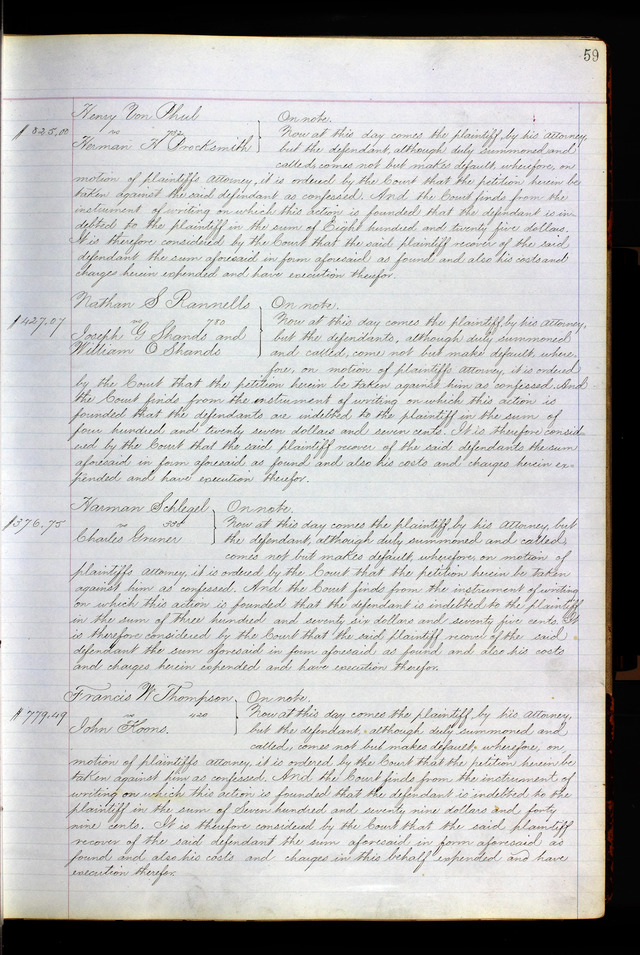 59
Henry Von Phul } On note.
$825.00 vs 782 Now at this day comes the plaintiff, by his attorney,
Herman H Brocksmith but the defendant, although duly summoned and
called, comes not but makes default, wherefore, on
motion of plaintiffs attorney, it is ordered by the Court that the petition herein be
taken against the said defendant as confessed. And the Court finds from the
instrument of writing on which this action is founded that the defendant is in-
debted to the plaintiff in the sum of Eight hundred and twenty five dollars.
It is therefore considered by the Court that the said plaintiff recover of the said
defendant the sum aforesaid in form aforesaid as found and also his costs and
charges herein expended and have execution therefor.
Nathan S Rannells } On note.
$427.07 vs 780 Now at this day comes the plaintiff, by his attorney,
Joseph G Shands and but the defendants, although duly summoned
William O Shands and called, come not but make default, where-
fore, on motion of plaintiffs attorney, it is ordered
by the Court that the petition herein be taken against him as confessed. And
the Court finds from the instrument of writing on which this action is
founded that the defendants are indebted to the plaintiff in the sum of
four hundred and twenty seven dollars and seven cents. It is therefore consid-
ered by the Court that the said plaintiff recover of the said defendants the sum
aforesaid in form aforesaid as found and also his costs and charges herein ex-
pended and have execution therefor.
Harman Schlegel } On note.
$376.75 vs Now at this day comes the plaintiff, by his attorney, but
Charles Gruner the defendant, although duly summoned and called,
comes not but makes default, wherefore, on motion of
plaintiffs attorney, it is ordered by the Court that the petition herein be taken
against him as confessed. And the Court finds from the instrument of writing
on which this action is founded that the defendant is indebted to the plaintiff
in the sum of three hundred and seventy six dollars and seventy five cents. It
is therefore considered by the Court that the said plaintiff recover of the said
defendant the sum aforesaid in form aforesaid as found and also his costs
and charges herein expended and have execution therefor.
Francis W Thompson } On note.
$779.49 vs 420 Now at this day comes the plaintiff, by his attorney,
John Koons. but the defendant, although duly summoned and
called, comes not but makes default, wherefore, on
motion of plaintiffs attorney, it is ordered by the Court that the petition herein be
taken against him as confessed. And the Court finds from the instrument of
writing on which this action is founded that the defendant is indebted to the
plaintiff in the sum of Seven hundred and seventy nine dollars and forty
nine cents. It is therefore considered by the Court that the said plaintiff
recover of the said defendant the sum aforesaid in form aforesaid as
found and also his costs and charges in this behalf expended and have
execution therefor.